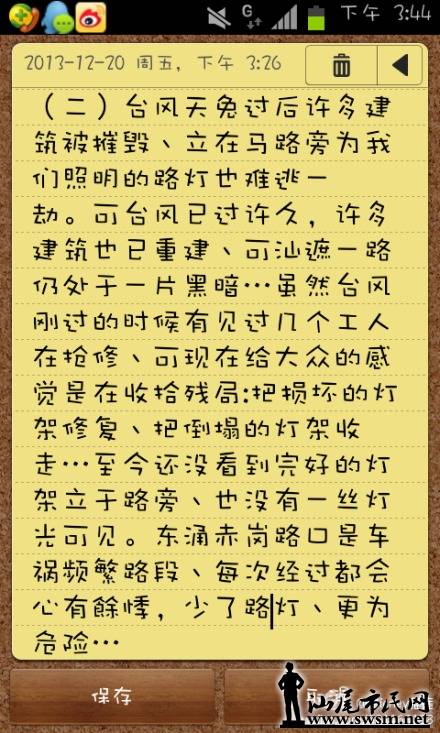 G
下午 3:44
2013-12-20 周五, 下午 3:26
（二）台风天兔过后许多建
筑被摧毁、立在马路旁为我
们照明的路灯也难逃一
劫。可台风已过许久，许多
建筑也已重建、可汕遮一路
仍处于一片黑暗…虽然台风
刚过的时候有见过几个工人
在抢修、可现在给大众的感
觉是在收拾残局:把损坏的灯
架修复、把倒塌的灯架收
走…至今还没看到完好的灯
架立于路旁、也没有一丝灯
光可见。东涌赤岗路口是车
祸频繁路段、每次经过都会
心有餘悸，少了路灯、更为
危险…
保存
汕尾市民网
www.swsm.net